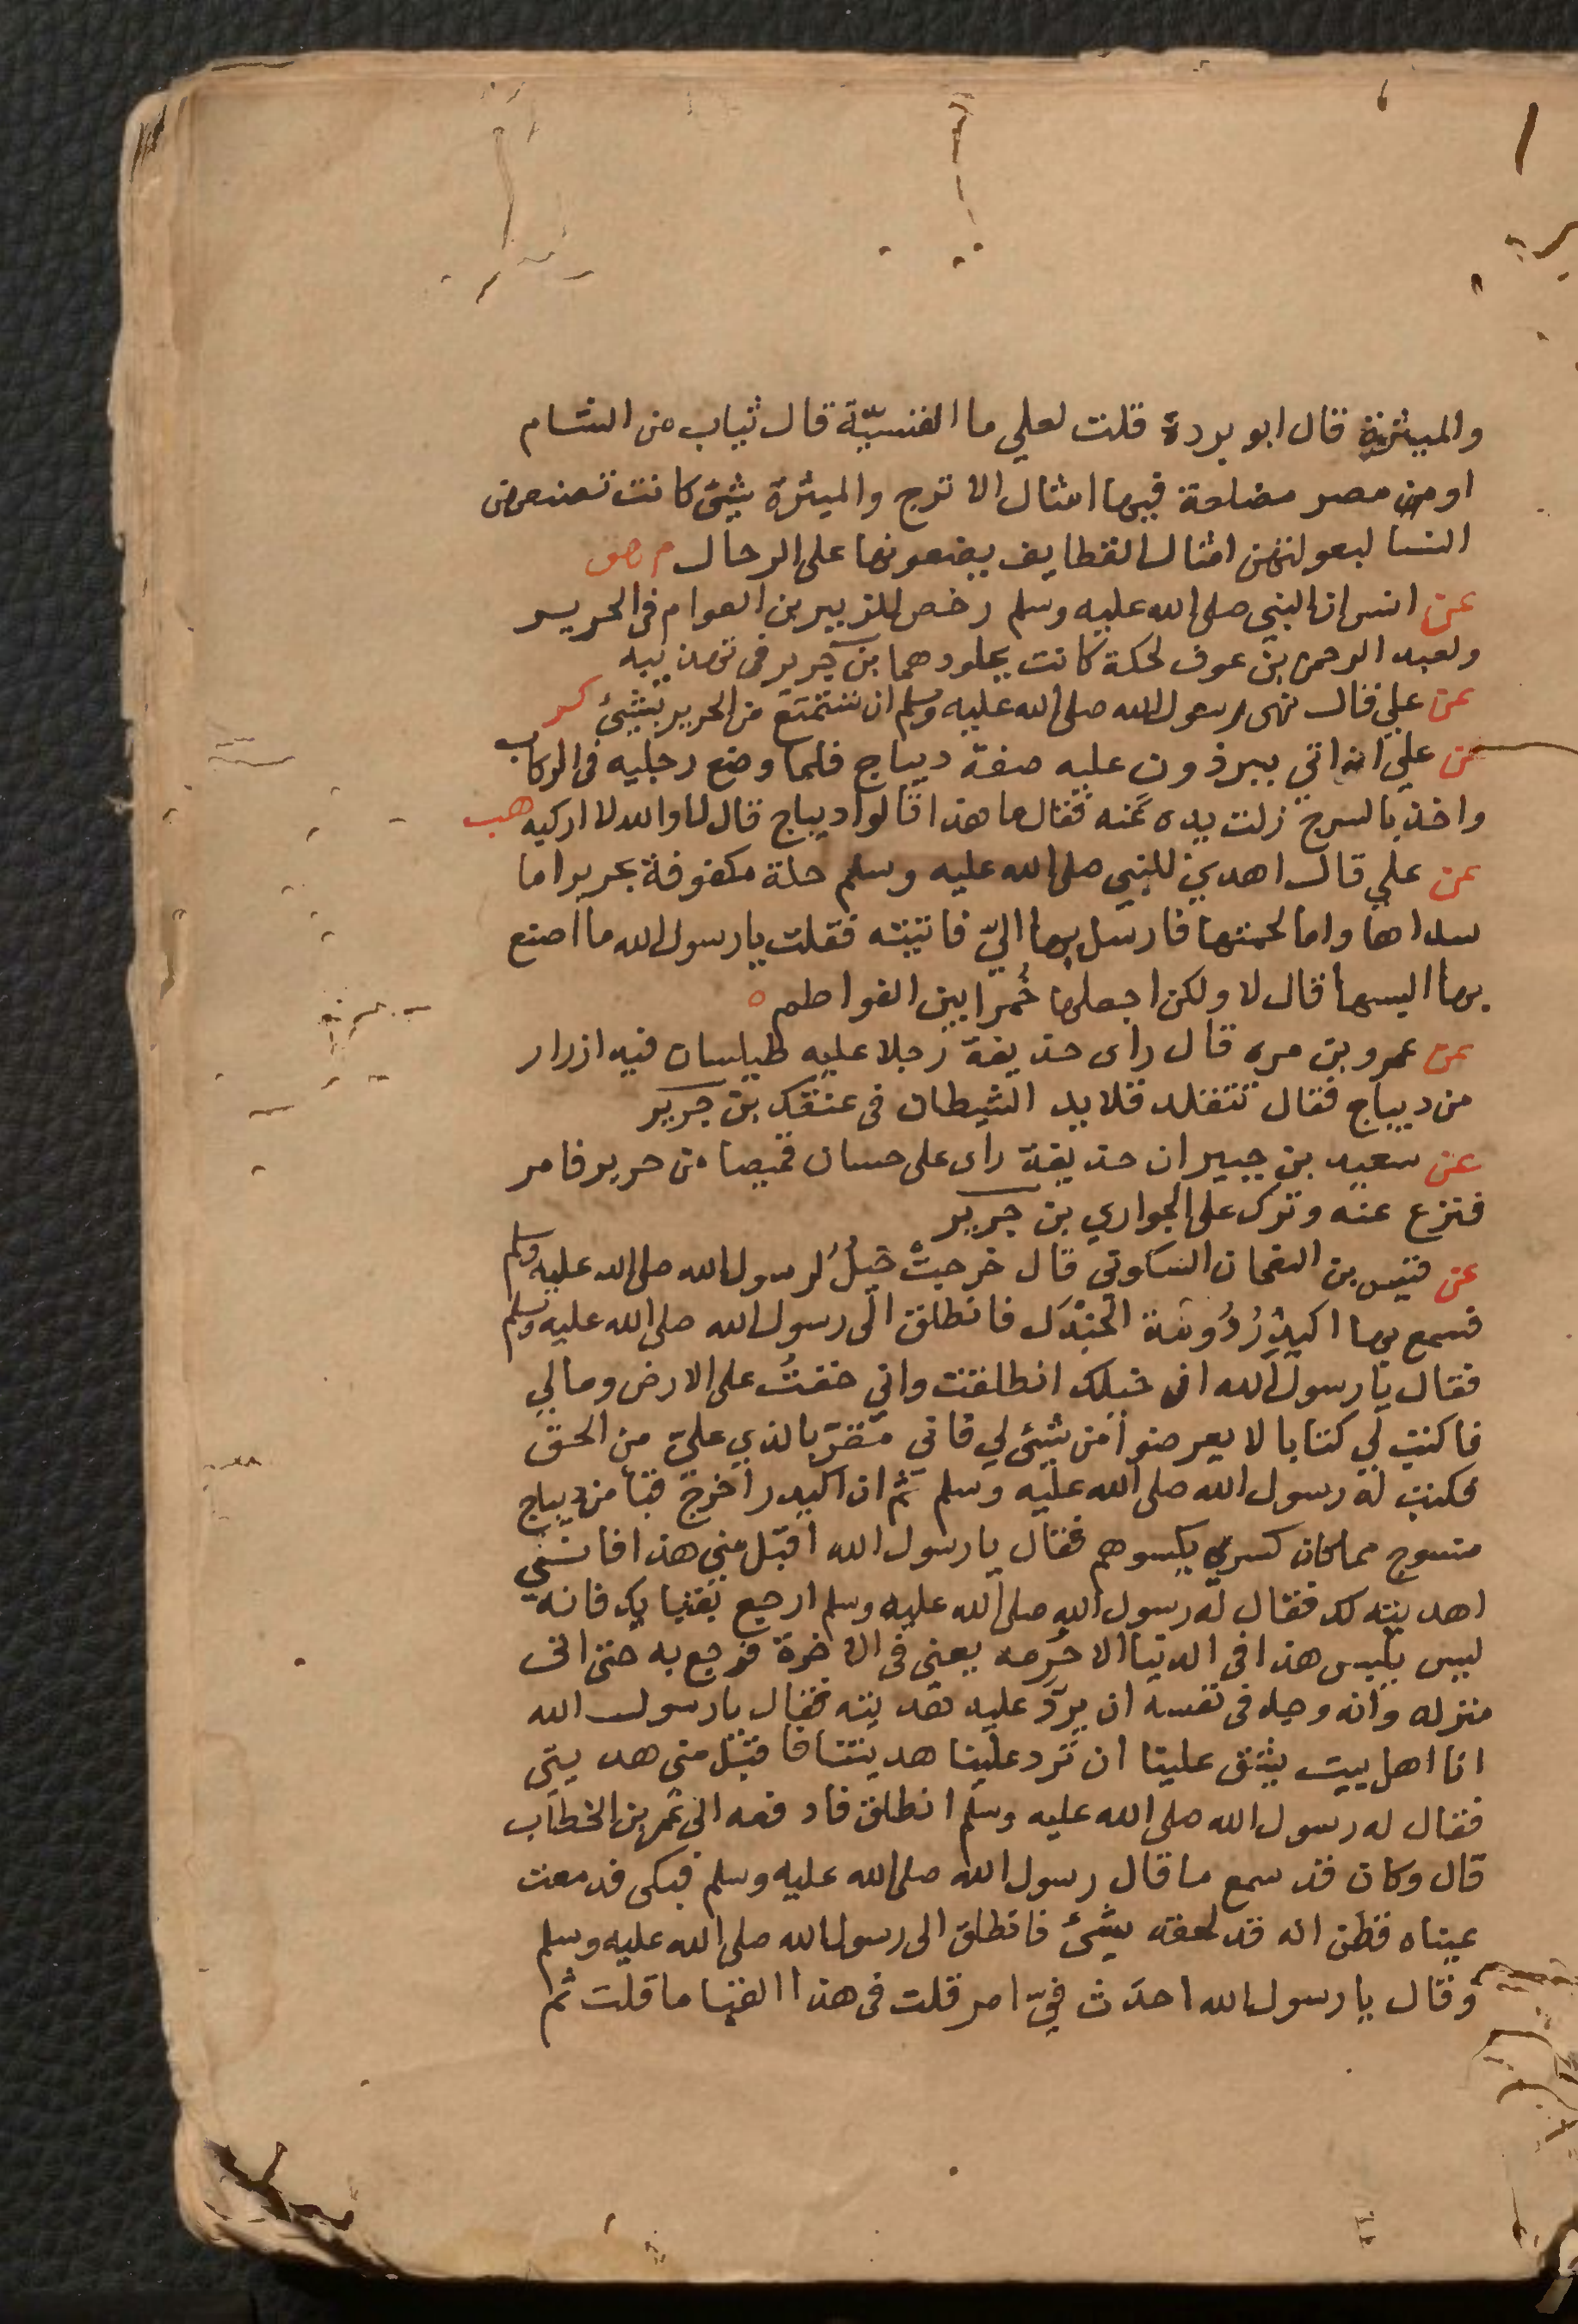 والميثرة قال ابو بردة قلت لعلي ما القسيّة قال ثياب من الشام
او من مصر مضلعة فيها امثال الاترج والميثرة شيئ كانت تصنعه
النسا لبعولتهن امثال القطايف يضعونها على الرحال م هق
عن انس ان النبي صلى الله عليه وسلم رخص للزبير بن العوام فى الحرير
ولعبد الرحمن بن عوف لحكة كانت بجلودهما بن جرير فى تهذيبه
عن علي قال نهى رسول الله صلى الله عليه وسلم ان نستمتع من الحرير بشيئ كر
عن علي انه اتي ببرذون عليه صفة ديباج فلما وضع رجليه فى الركاب
واخذ بالسرج زلت يده عنه فقال ما هذا قالوا ديباج قال لا والله لا اركبه هب
عن علي قال اهدي للنبي صلى الله عليه وسلم حلة مكفوفة بحرير اما
سداها واما لحمتها فارسل بها اليّ فاتيته فقلت يا رسول الله ما اصنع
بها البسها قال لا ولكن اجعلها خُمرا بين الفواطم ه
عن عمرو بن مره قال راى حذيفة رجلا عليه طيلسان فيه ازرار
من ديباج فقال تتقلد قلايد الشيطان فى عنقك بن جرير
عن سعيد بن جبير ان حذيفة راى على حسان قميصا من حرير فامر
فنزع عنه وترك على الجواري بن جرير
عن قيس بن النعمان السكوني قال خرجتْ خيلُ لرسول الله صلى الله عليه وسلم
فسمع بها اكيدِرُ دُومة الجَنْدَل فانطلق الى رسول الله صلى الله عليه وسلم
فقال يا رسول الله ان خيلك انطلقت واني خفتُ على الارض ومالي
فاكتب لي كتابا لا يعرضوا من شيئ لي فاني مقرّ بالذي عليّ من الحق
فكتب له رسول الله صلى الله عليه وسلم ثم ان اكيدر اخرج قبا من ديباج
منسوج مما كان كسرى يكسوهم فقال يا رسول الله اقبل مني هذا فانني
اهديته لك فقال له رسول الله صلى الله عليه وسلم ارجع بقبايك فانه
ليس يلبس هذا فى الدنيا الا حُرمه يعني فى الاخرة فرجع به حتى اتى
منزله وانه وجد فى نفسه ان يردّ عليه هديته فقال يا رسول الله
انا اهل بيت يشق علينا ان تردعلينا هديتنا فاقبل مني هديتي
فقال له رسول الله صلى الله عليه وسلم انطلق فادفعه الى عمر بن الخطاب
قال وكان قد سمع ما قال رسول الله صلى الله عليه وسلم فبكى فدمعت
عيناه فظن انه قد لحقه شيئ فانطلق الى رسول الله صلى الله عليه وسلم
وقال يا رسول الله احدَث فيّ امر قلت فى هذا القبا ما قلت ثم